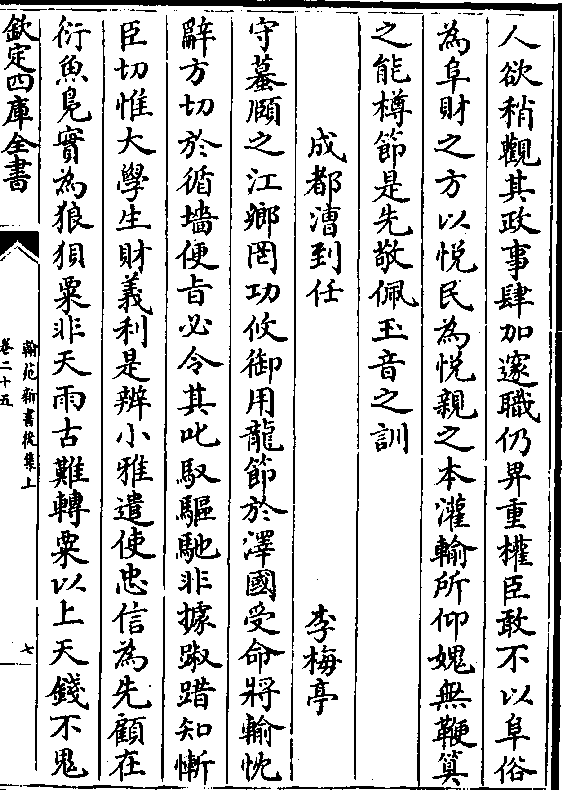 人欲稍觀其政事肆加邃職仍畀重權臣敢不以阜俗
為阜財之方以悦民為悦親之本灌輸所仰媿無鞭算
之能樽節是先敬佩玉音之訓
成都漕到任 李梅亭
守蟇頤之江鄉罔功攸御用龍節於澤國受命將輸忱
辭方切於循墻便㫖必令其叱馭驅馳非據踧踖知慚
臣切惟大學生財義利是辨小雅遣使忠信為先顧在
衍魚鳬實為狼狽粟非天雨古難轉粟以上天錢不鬼
欽定四庫全書
翰苑新書後集上
卷二十五
七